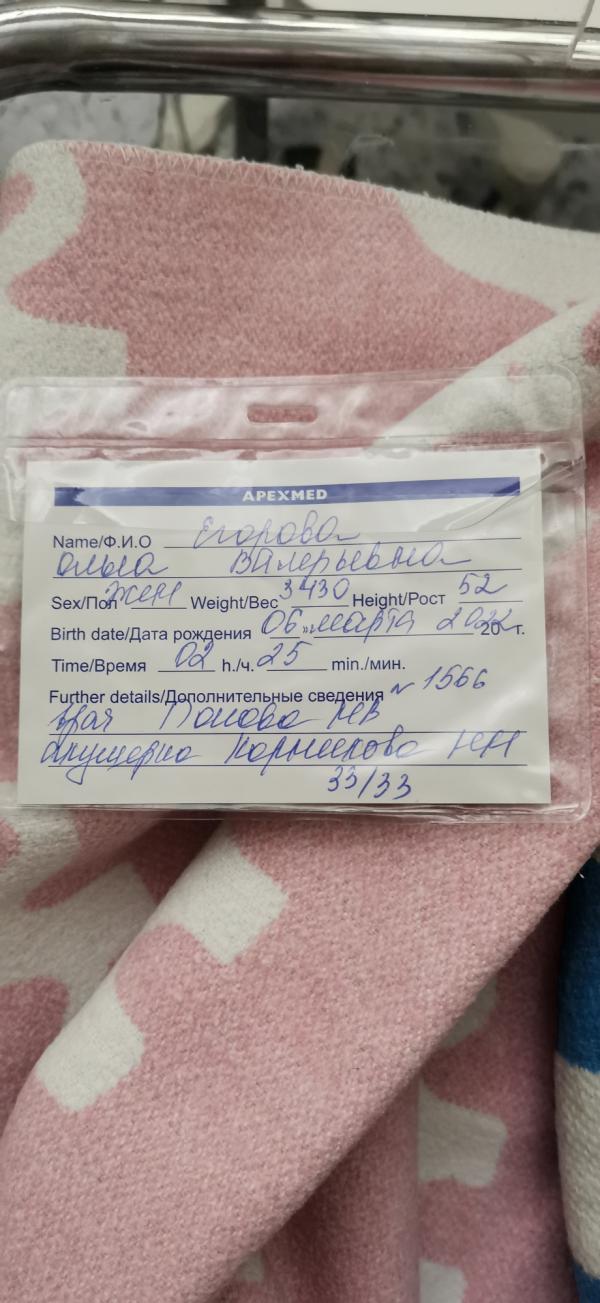 APEXMED
Name/Ф.И.О Егорова
Ольга Валерьевна
Sex/Пол жен Weight/Вес 3430 Height/Рост 52
Birth date/Дата рождения 06 " марта 2022 20 г.
Time/Время 02 h./ч. 25 min./мин.
Further details/Дополнительные сведения N 1566
врач Попова НВ
акушерка Корнилова НН
33/33